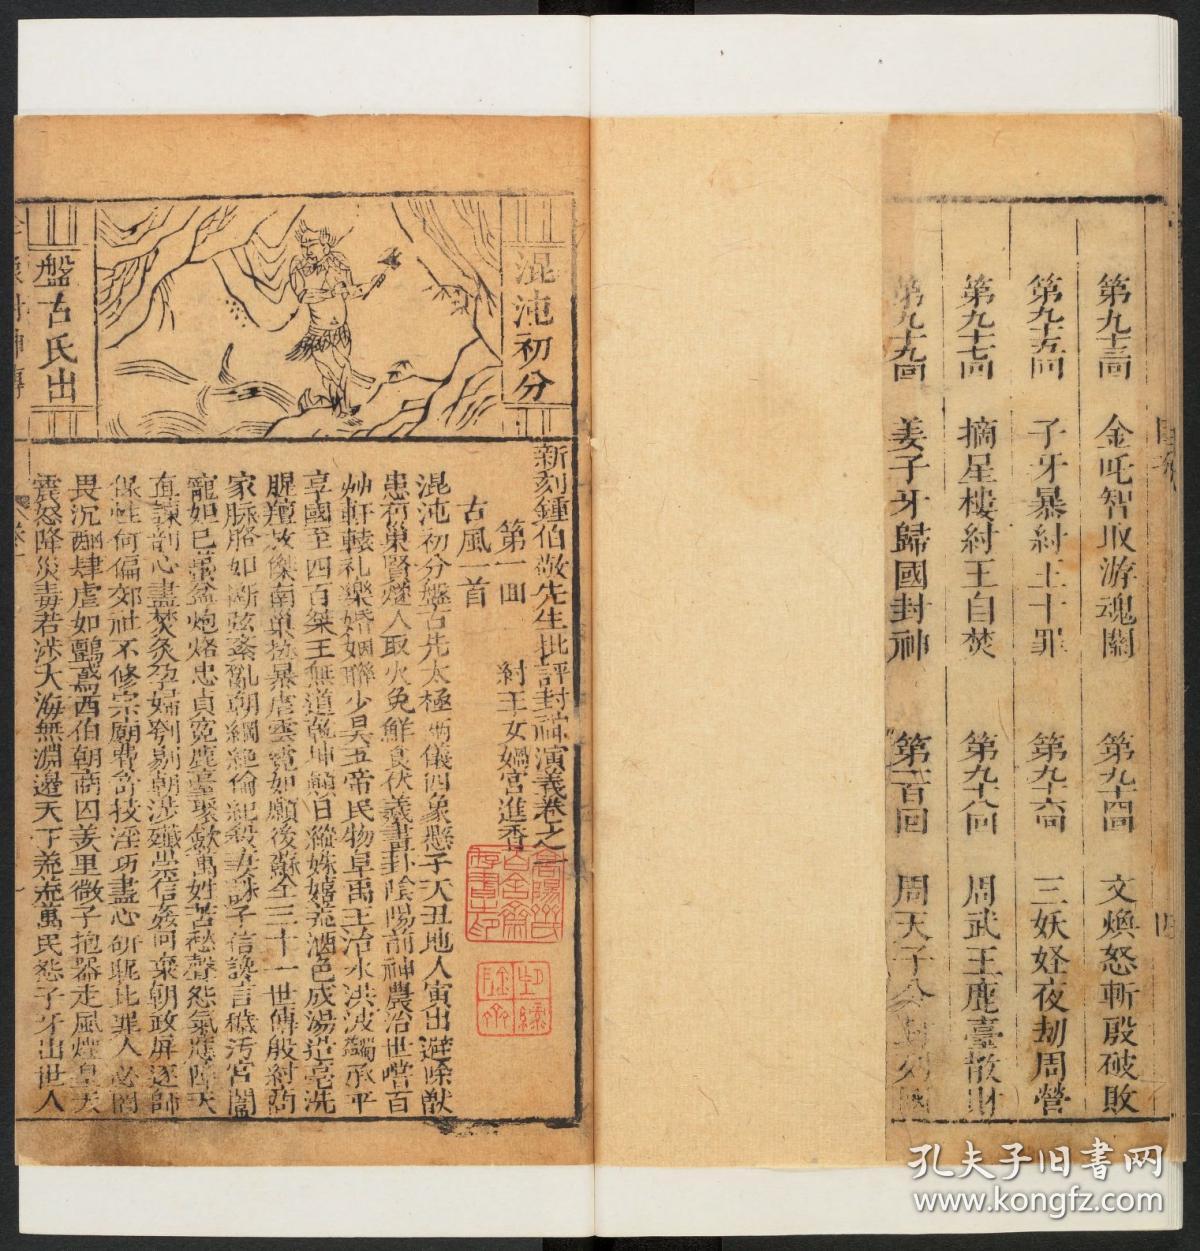 第九十三回 金吒智取游魂關 第九十四回 文煥怒斬殷破敗
第九十五回 子牙暴紂王十罪 第九十六回 三妖怪夜刼周營
第九十七回 摘星樓紂王自焚 第九十八回 周武王鹿臺散財
第九十九回 姜子牙歸國封神 第一百回 周天子分封列國
混沌初分
盤古氏出
新刻鍾伯敬先生批評封神演義卷之一
第一回 紂王女媧宮進香
古風一首
混沌初分盤古先太極兩儀四象懸子天丑地人寅出避除獸
患有巢賢燧人取火免鮮食伏羲畫卦陰陽前神農治世嚐百
艸軒轅礼樂婚姻聯少昊五帝民物阜禹王治水洪波蠲承平
享國至四百桀王無道乾坤顛日縱妹嬉荒酒色成湯造亳洗
腥羶放傑南巢拯暴虐雲霓如願後蘇全三十一世傳殷紂商
家脉胳如斷弦紊亂朝綱絶倫紀殺妻誅子信讒言穢污宮闈
寵妲已蠆盆炮烙忠貞寃鹿臺聚歛萬姓苦愁聲怨氣應障天
直諫剖心盡焚炙孕婦刳剔朝涉殲崇信姦回棄朝政屏逐師
保性何偏郊社不修宗廟費竒技淫巧盡心研昵比罪人必罔
畏沉酗肆虐如鸇鳶西伯朝商囚羑里微子抱器走風煙皇天
震怒降災毒若涉大海無淵邊天下荒荒萬民怨子牙出世人
孔夫子旧書网
www.kongfz.com